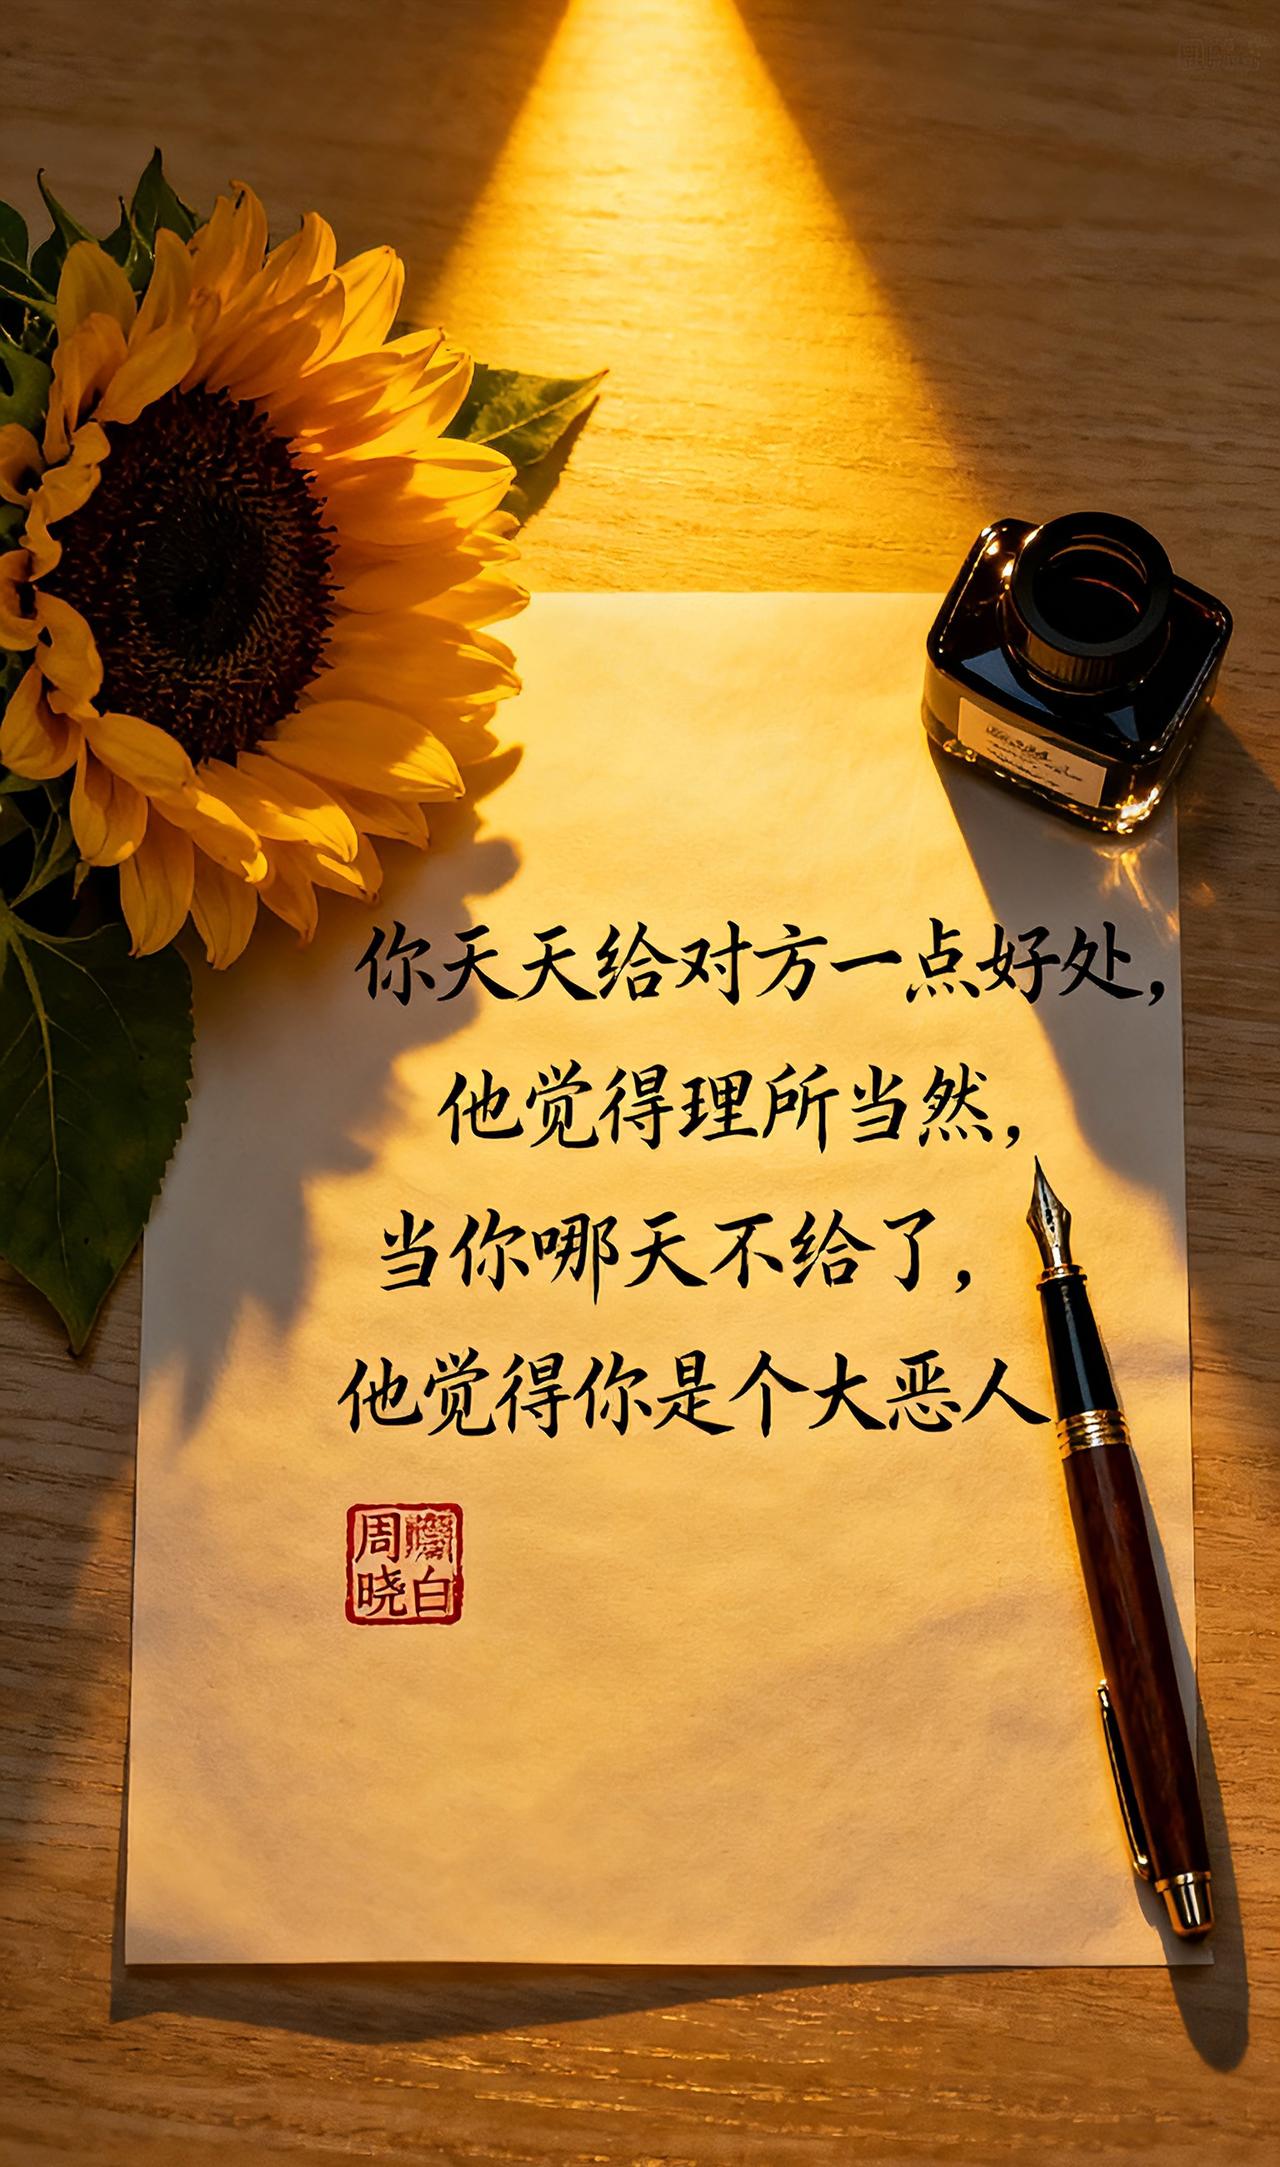 你天天给对方一点好处，
他觉得理所当然，
当你哪天不给了，
他觉得你是个大恶人
周
晓白